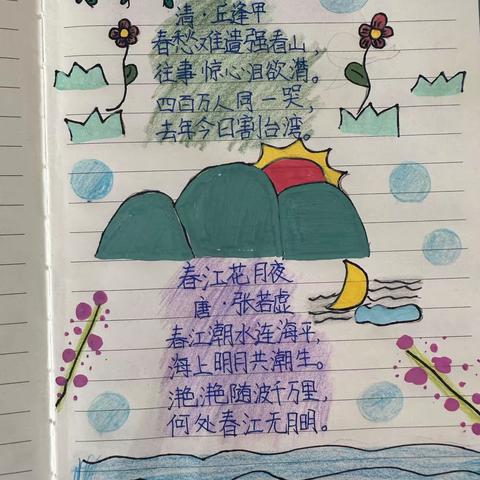 清·丘逢甲
春愁难遣强看山,
往事惊心泪欲潸。
四百万人同一哭,
去年今日割台湾。
春江花月夜
唐·张若虚
春江潮水连海平,
海上明月共潮生。
滟滟随波千万里,
何处春江无月明。